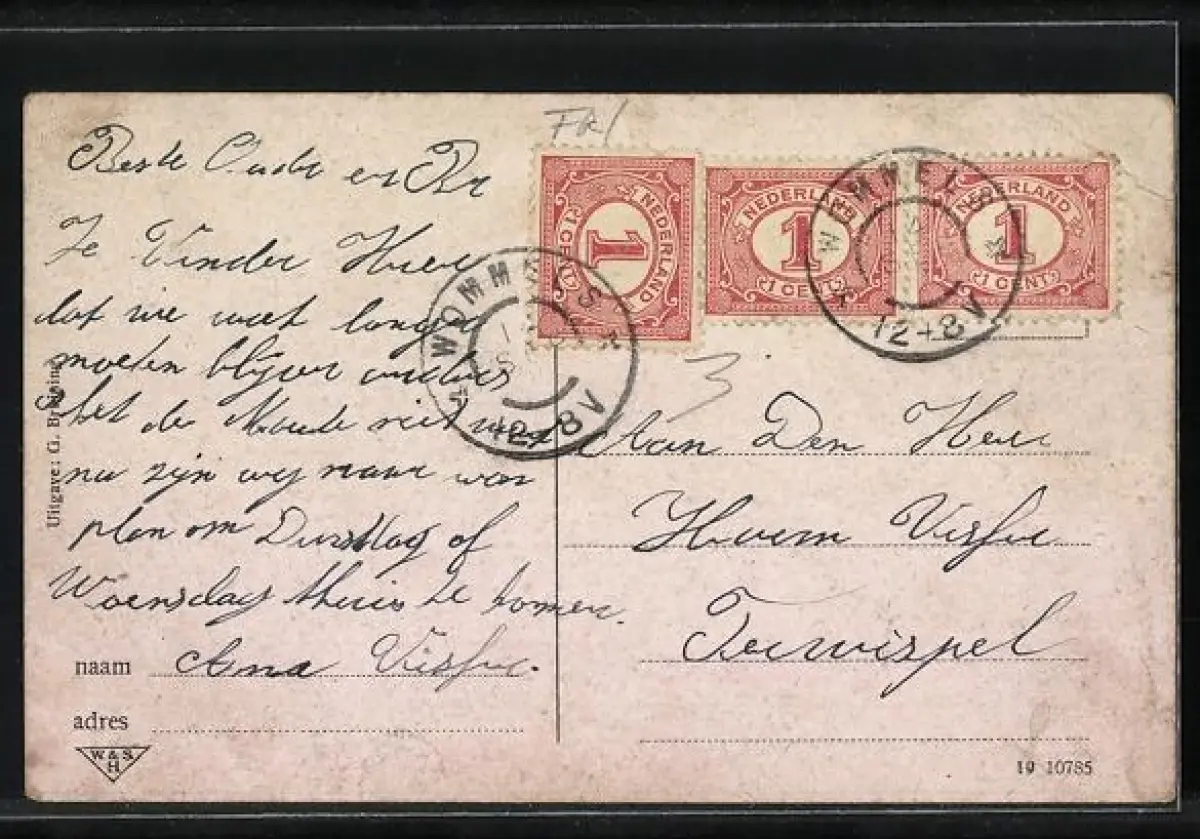 Fr/
Beste Ouders en Br
Ze Vinder Hier
dat we wat lange
moeten blijven anders
het de Moude niet wat
nu zijn wij naar van
plan om Dinsdag of
Woensdag thuis te komen.
naam Ana Visser.
adres
W & S.
H.
Uitgave: G. Bruining
NEDERLAND
1
1 CENT
NEDERLAND
1
1 CENT
NEDERLAND
1
1 CENT
WOMMELS
12+8V
WOMMELS
12+8V
3
Aan Den Heer
Harm Visser
Terwispel
19 10785